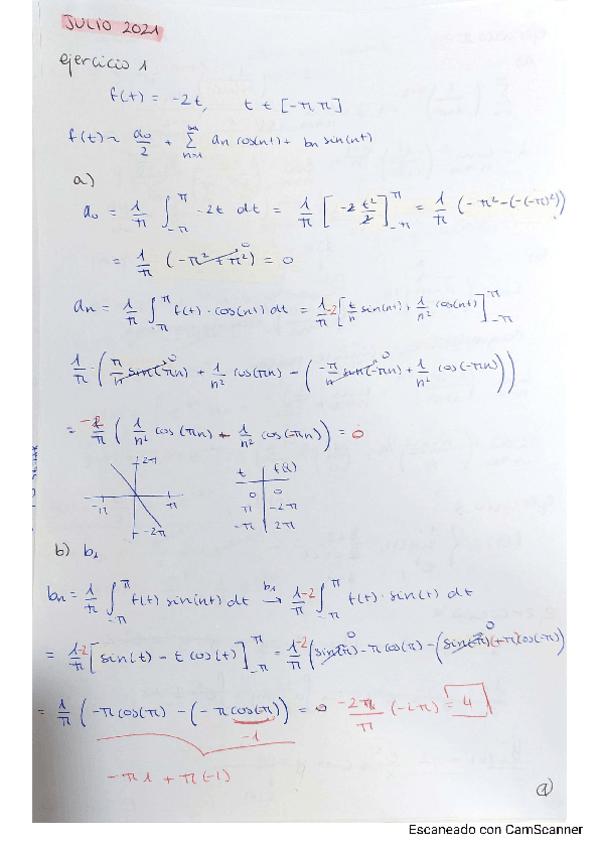 JULIO 2021
ejercicio 1
f(t) = -2t, t ∈ [-π π]
f(t) ~ a0/2 + Σ n=1 ∞ an cos(nt) + bn sin(nt)
a)
a0 = 1/π ∫_-π^π -2t dt = 1/π [-2 t²/2]_-π^π = 1/π (-π² - (-(-π)²))
= 1/π (-π² + π²) 0 = 0
an = 1/π ∫_-π^π f(t) · cos(nt) dt = 1/π -2 [t/n sin(nt) + 1/n² cos(nt)]_-π^π
1/π · (π/n sin(πn) 0 + 1/n² cos(πn) - (-π/n sin(-πn) 0 + 1/n² cos(-πn)))
= -2/π (1/n² cos(πn) - 1/n² cos(-πn)) = 0
2π
-π π
-2π
t f(t)
0 0
π -2π
-π 2π
b) b1
bn = 1/π ∫_-π^π f(t) sin(nt) dt b1 → 1/π -2 ∫_-π^π f(t) · sin(t) dt
= 1/π -2 [sin(t) - t cos(t)]_-π^π = 1/π -2 (sin(π) 0 - π cos(π) - (sin(-π) 0 (+π)cos(-π))
= 1/π (-π cos(π) - (-π cos(π))) = -2/π (-2π) = 4
-1
-π1 + π(-1)
1
Escaneado con CamScanner